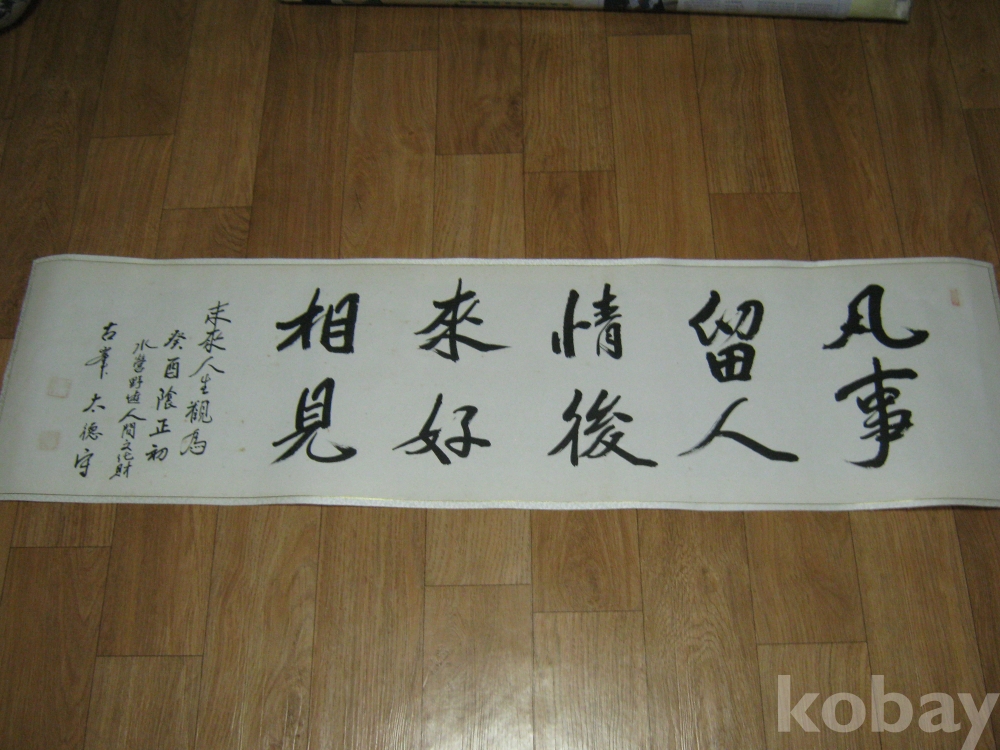 凡事
留人
情後
來好
相見
未來人生觀爲
癸酉陰正初
水營野遊人間文化財
古峯 太德守
kobay